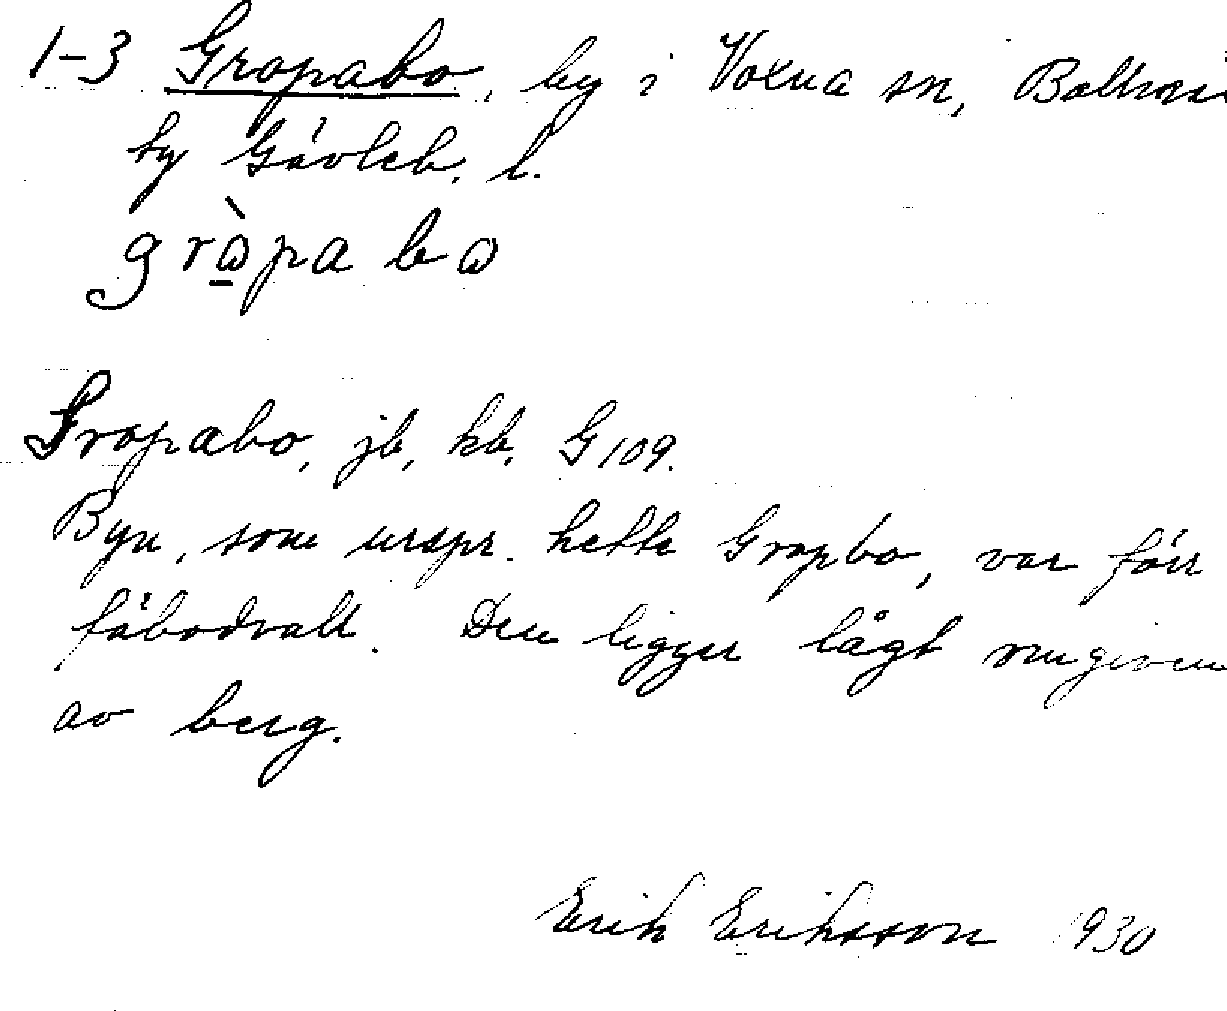 1-3 Gropabo, by i Voxna sn,
by Gävleb. l.
gròpa bo
Gropabo, jb, kb, G 109.
Byn, som urspr. hette Gropbo, var förr
fäbodvall. Den ligger lågt omgiven
av berg.
Erik Eriksson 1930